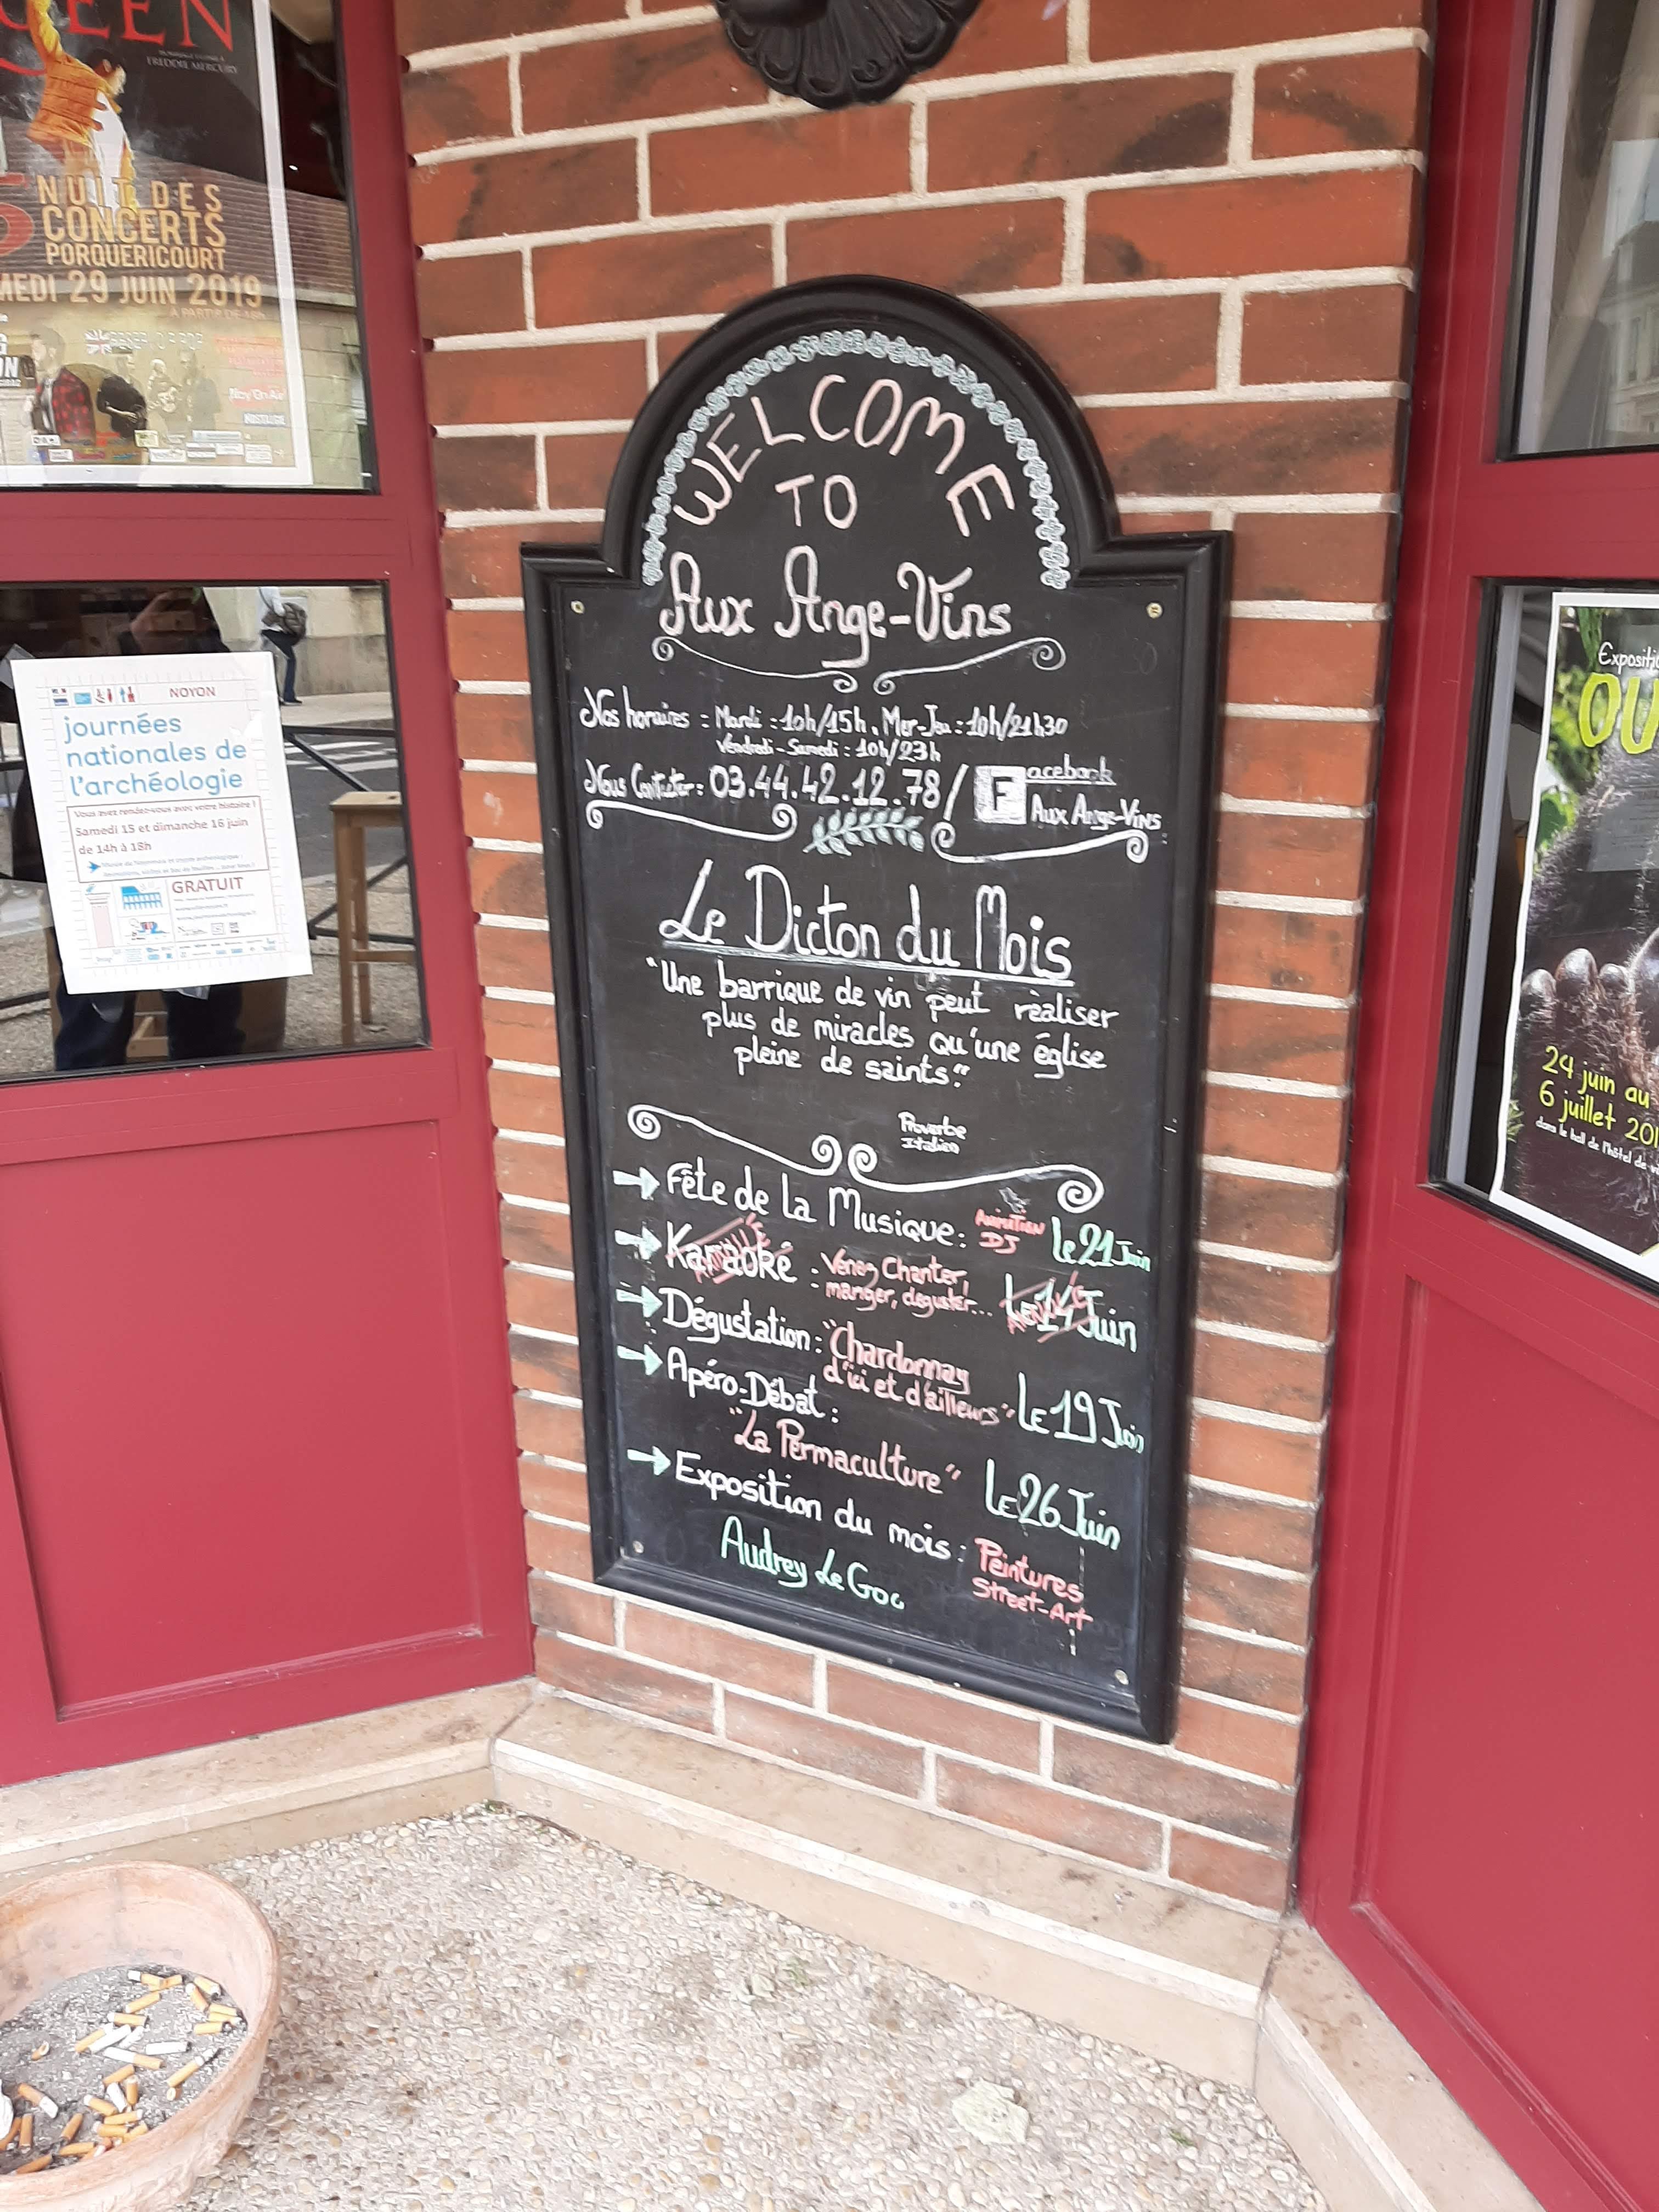 EEN
FREDDIE MERCURY
5
NUIT DES
CONCERTS
PORQUERICOURT
MEDI 29 JUIN 2019
NOYON
journées
nationales de
l'archéologie
Vous avez rendez-vous avec votre histoire !
Samedi 15 et dimanche 16 juin
de 14h à 18h
GRATUIT
WELCOME
TO
Aux Ange-Vins
Nos horaires : Mardi : 10h/15h, Mer-Jeu : 10h/21h30
Vendredi - Samedi : 10h/23h
Nous Contacter : 03.44.42.12.78 / Facebook
Aux Ange-Vins
Le Dicton du Mois
"Une barrique de vin peut réaliser
plus de miracles qu'une église
pleine de saints."
Proverbe
Italien
→ Fête de la Musique : Animation DJ Le 21 Juin
→ Karaoké : Venez Chanter, Le 14 Juin
manger, déguster...
→ Dégustation : "Chardonnay
d'ici et d'ailleurs" Le 19 Juin
→ Apéro-Débat :
"La Permaculture" Le 26 Juin
→ Exposition du mois : Peintures
Street-Art
Audrey Le Goc
Expositi
OU
24 juin au
6 juillet 201
dans le hall de l'hôtel de v